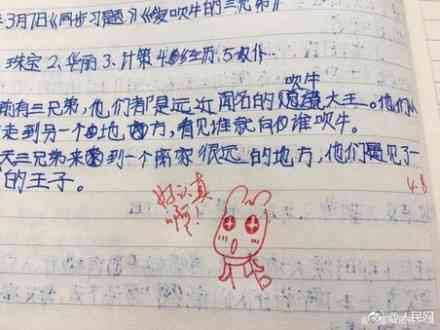 年3月7日《同步习题》《爱吹牛的三兄弟》
珠宝 2、华丽 3、计策 4、经历 5、
吹牛
前有三兄弟,他们都是远近闻名的大王。他们
走到另一个地方,看见谁就向谁吹牛。
天三兄弟来到一个离家很远的地方,他们遇见了一
的王子。
好认真啊!
@人民网